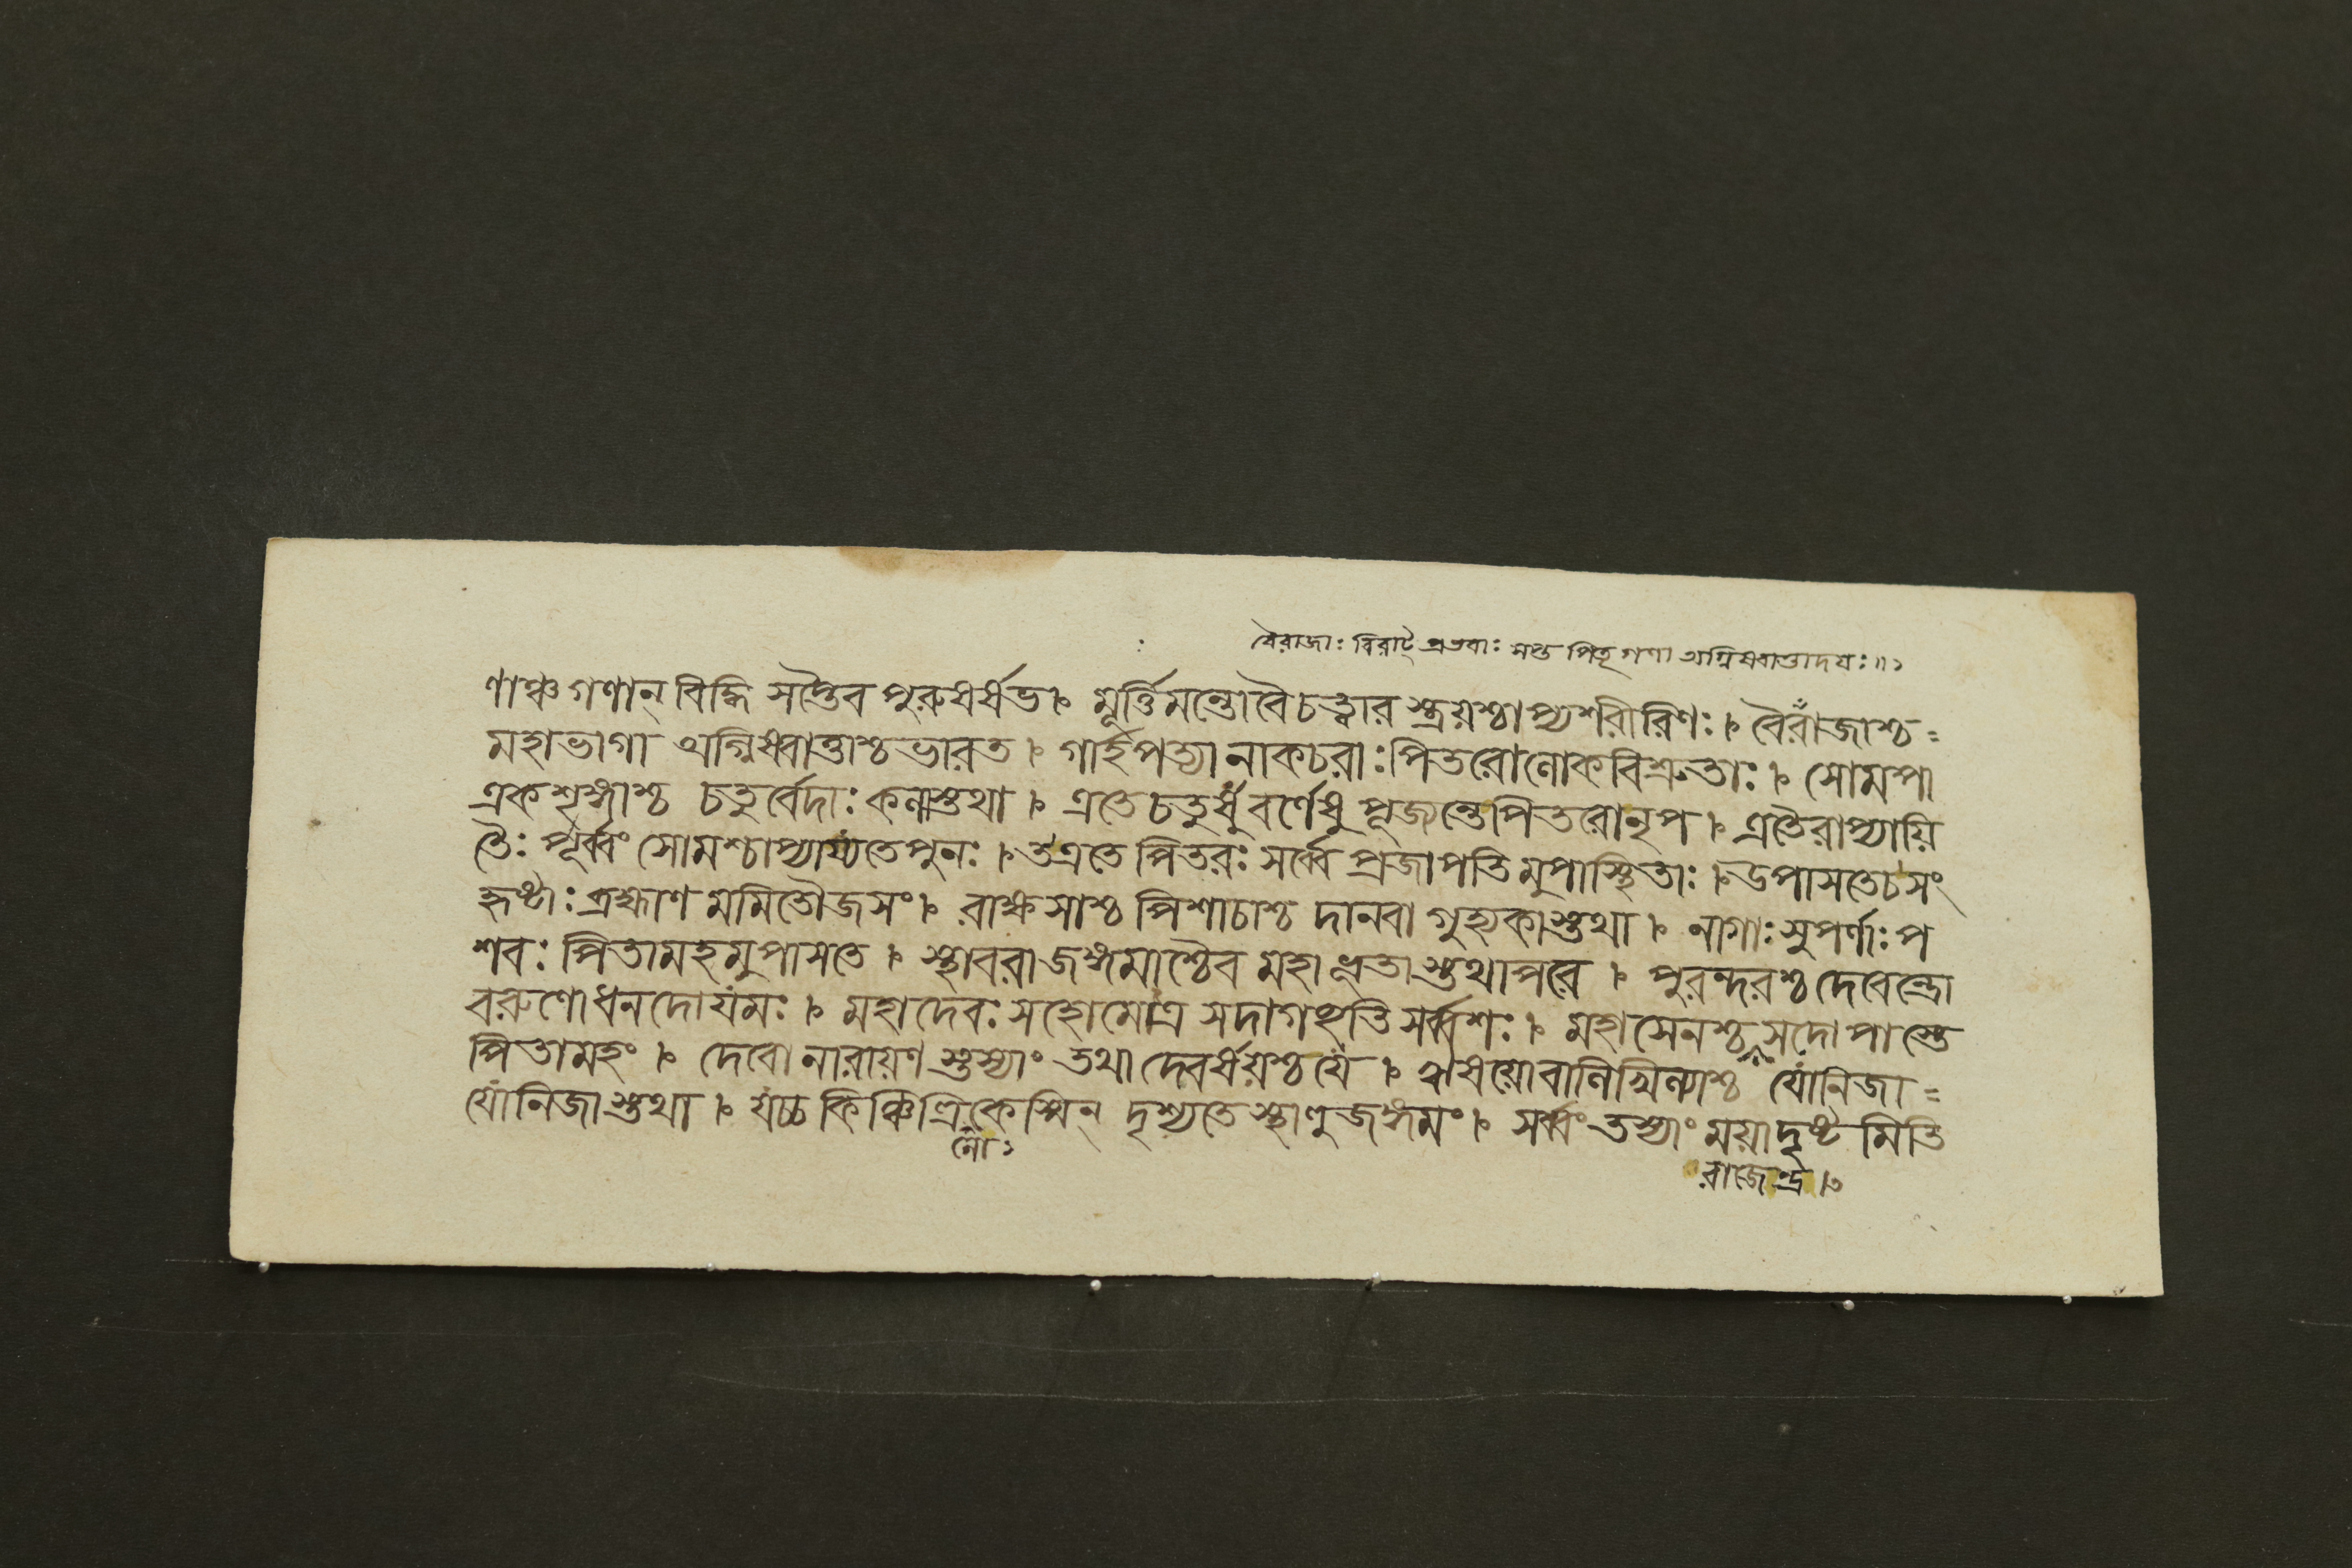 বৈরাজাঃ বিরাট্ প্রভবাঃ সপ্ত পিতৃ গণা অগ্নিষ্বাত্তাদযঃ॥১
ণাঞ্চ গণান্ বিদ্ধি সপ্তৈব পুরুষর্ষভ। মূর্ত্তিমন্তো বৈ চত্ত্বার স্ত্রয়শ্চাপ্যশরীরিণঃ। বৈরাজাশ্চ=
মহাভাগা অগ্নিষ্বাত্তাশ্চ ভারত। গার্হপত্যা নাকচরাঃ পিতরো লোকবিশ্রুতাঃ। সোমপা
একশৃঙ্গাশ্চ চতুর্ব্বেদাঃ কলাস্তথা। এতে চতুর্ষু বর্ণেষু পূজ্যন্তে পিতরো নৃপ। এতৈরাপ্যায়ি
তৈঃ পূর্ব্বং সোমশ্চাপ্যায্যতে পুনঃ। ত এতে পিতরঃ সর্ব্বে প্রজাপতিমুপাস্থিতাঃ। উপাসতে চ সং
হৃষ্টাঃ ব্রহ্মাণমমিতৌজসং। রাক্ষসাশ্চ পিশাচাশ্চ দানবা গুহ্যকাস্তথা। নাগাঃ সুপর্ণাঃ প
শবঃ পিতামহমুপাসতে। স্থাবরা জঙ্গমাশ্চৈব মহাভূতাস্তথাপরে। পুরন্দরশ্চ দেবেন্দ্রো
বরুণো ধনদো যমঃ। মহাদেবঃ সহোমোত্র সদা গচ্ছতি সর্ব্বশঃ। মহাসেনশ্চ সদোপাস্তে
পিতামহং। দেবো নারায়ণ স্তস্যাং তথা দেবর্ষয়শ্চ যে। ঋষয়ো বালিখিল্যাশ্চ যোনিজা=
যোনিজাস্তথা। যচ্চ কিঞ্চিত্ত্রিকেস্মিন্ দৃশ্যতে স্থাণুজঙ্গমং। সর্ব্বং তস্যাং ময়া দৃষ্ট মিতি
লো১
রাজেন্দ্র।